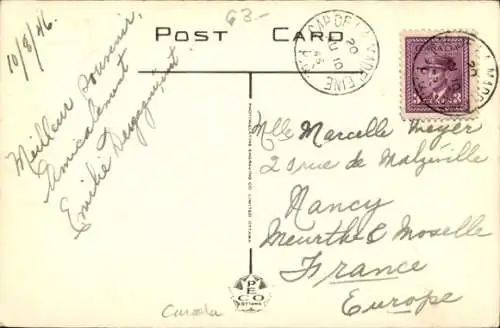 63-
POST CARD
10/8/46.
Meilleur souvenir,
Amicalement
Emilie
CAP DE LA MADELEINE
20
10
46
CANADA
3 CENTS 3
Mlle Marcelle Meyer
20 rue de Malzéville
Nancy
Meurthe & Moselle
France
Europe
PHOTOGELATINE ENGRAVING CO. LIMITED OTTAWA
PECO
OTTAWA
Canada